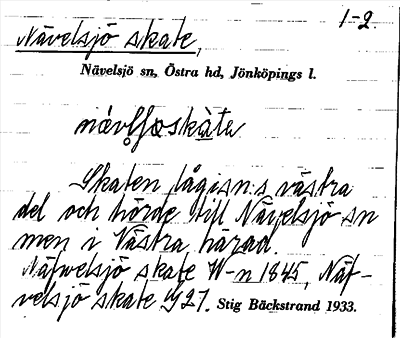 1-2.
Nävelsjö skate,
Nävelsjö sn, Östra hd, Jönköpings l.
Skaten låg i sn:s västra
del och hörde till Nävelsjö sn
men i Västra härad.
Näfwelsjö skate W-n 1845, Näf-
velsjö skate GJ 27. Stig Bäckstrand 1933.